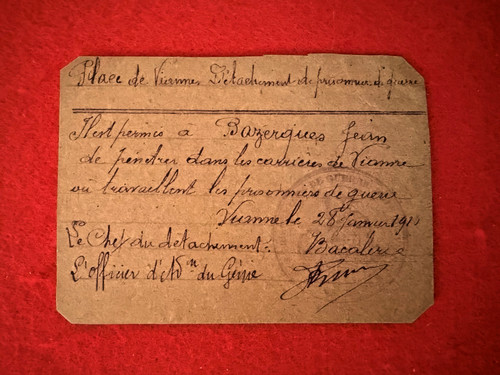 Place de Vianne Détachement de prisonniers de guerre
Il est permis à Bazergues Jean
de pénétrer dans les carrières de Vianne
où travaillent les prisonniers de guerre
Vianne le 28 Janvier
Le Chef du détachement:
L'Officier d'Adon du Génie